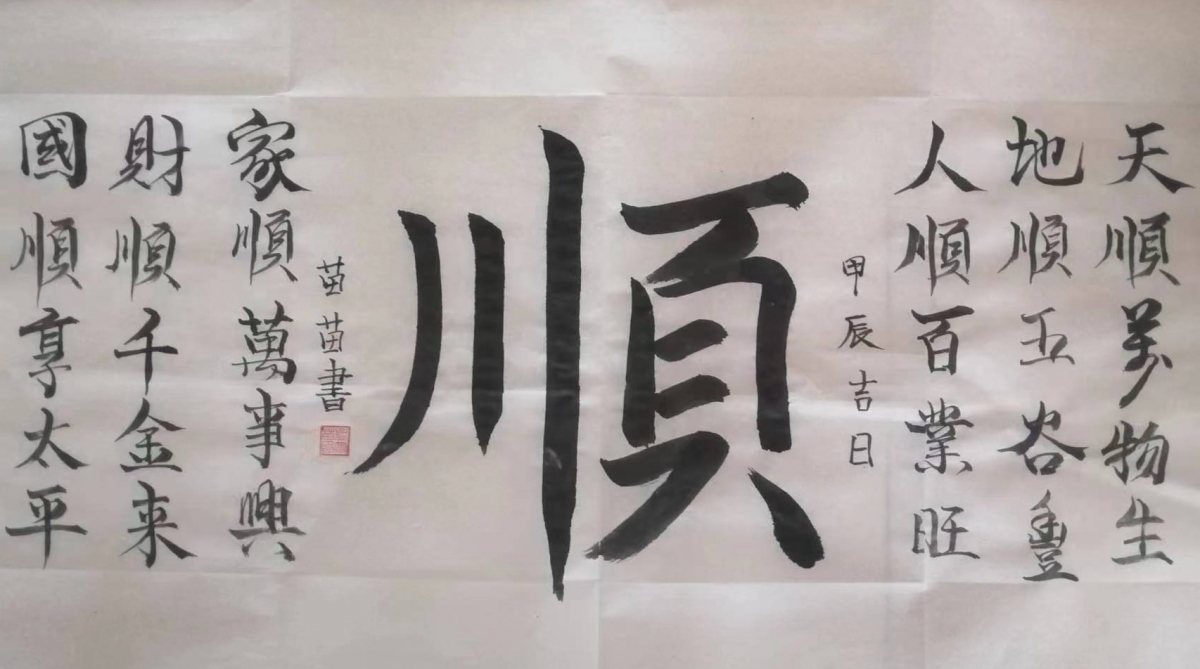 天順萬物生
地順五谷豐
人順百業旺
甲辰吉日
順
苗苗書
家順萬事興
財順千金来
國順享太平